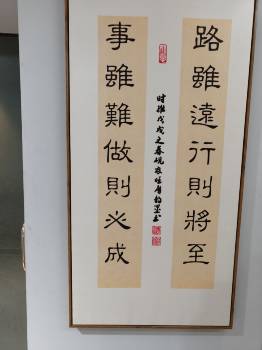 路雖遠行則將至
事雖難做則必成
时維戊戌之春